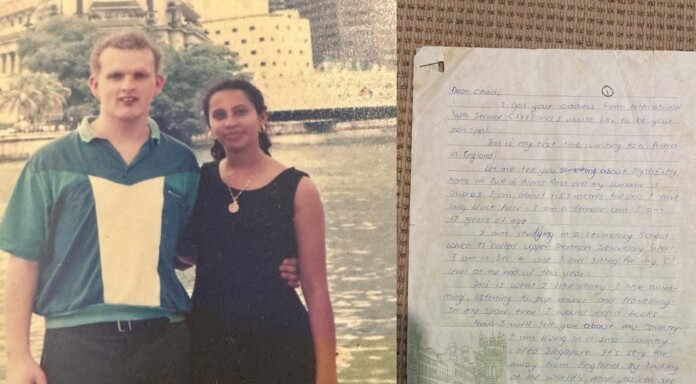 Dear Chad,
I got your address from International
Youth Service (IYS) and I would like to be your
pen-pal.
This is my first time writing to a friend
in England.
Let me tell you something about myself. My
name in full is and my surname is
I am about metres tall and I have
long black hair. I am a female and I am
17 years of age.
I am studying in a Secondary School
which is called Upper Thomson Secondary School.
I am in Sec 4 and I am sitting for my 'O'
level at the end of this year.
This is what I like doing. I like swim-
ming, listening to pop music and travelling.
In my spare time I would read books.
Now I will tell you about my country.
I am living in a small country
called Singapore. It's very far
away from England. By looking
at the world's map you can see